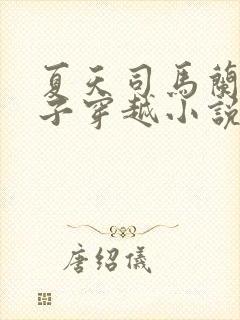 夏天司馬蘭
子穿越小說
唐紹儀